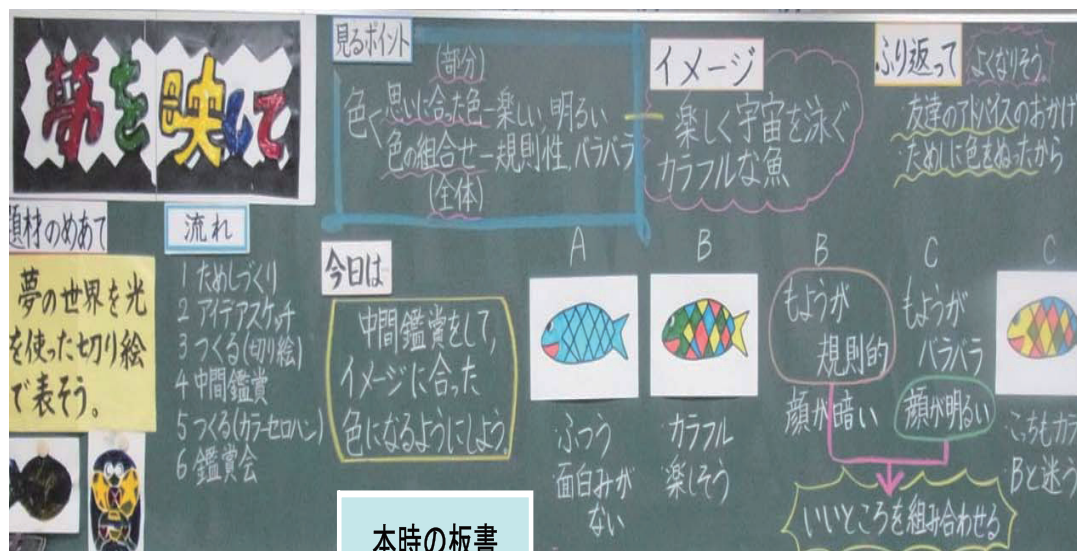 夢を映して
見るポイント
(部分)
色く思いに合た色ー楽しい,明るい
色の組合せー規則性,バラバラ
(全体)
イメージ
楽しく宇宙を泳ぐ
カラフルな魚
ふり返って
よくなりそう。
友達のアドバイスのおかげ
・ためしに色をぬったから
題材のめあて
夢の世界を光
を使った切り絵
で表そう。
流れ
1 ためしづくり
2 アイデアスケッチ
3 つくる(切り絵)
4 中間鑑賞
5 つくる(カラーセロハン)
6 鑑賞会
今日は
中間鑑賞をして,
イメージに合った
色になるようにしよう。
A
・ふつう
・面白みが
ない
B
・カラフル
・楽しそう
B
もようが
規則的
顔が暗い
C
もようが
バラバラ
顔が明るい
いいところを組み合わせる
C
・こっちもカラ
・Bと迷う
本時の板書